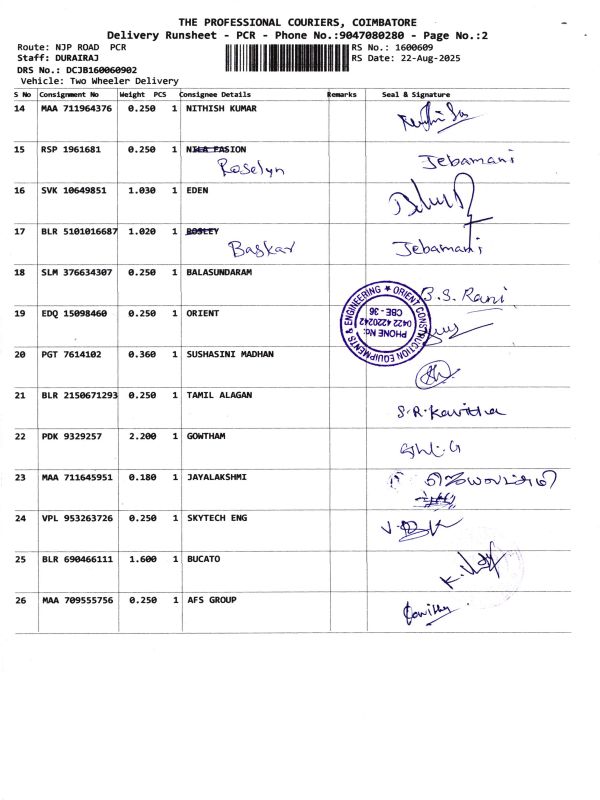 THE PROFESSIONAL COURIERS, COIMBATORE
Delivery Runsheet - PCR - Phone No.:9047080280 - Page No.:2
Route: NJP ROAD PCR
RS No.: 1600609
Staff: DURAIRAJ
RS Date: 22-Aug-2025
DRS No.: DCJB160060902
Vehicle: Two Wheeler Delivery
S No Consignment No Weight PCS Consignee Details Remarks Seal & Signature
14 MAA 711964376 0.250 1 NITHISH KUMAR
15 RSP 1961681 0.250 1 NILA FASION
Roselyn Jebamani
16 SVK 10649851 1.030 1 EDEN
17 BLR 5101016687 1.020 1 ROSLEY
Baskar Jebamani
18 SLM 376634307 0.250 1 BALASUNDARAM
B.S. Rani
19 EDQ 15098460 0.250 1 ORIENT
ORIENT CONSTRUCTION EQUIPMENTS & ENGINEERING
PHONE No:
0422 4220242
CBE - 36
20 PGT 7614102 0.360 1 SUSHASINI MADHAN
21 BLR 2150671293 0.250 1 TAMIL ALAGAN
S.R. Kavitha
22 PDK 9329257 2.200 1 GOWTHAM
23 MAA 711645951 0.180 1 JAYALAKSHMI
24 VPL 953263726 0.250 1 SKYTECH ENG
25 BLR 690466111 1.600 1 BUCATO
26 MAA 709555756 0.250 1 AFS GROUP